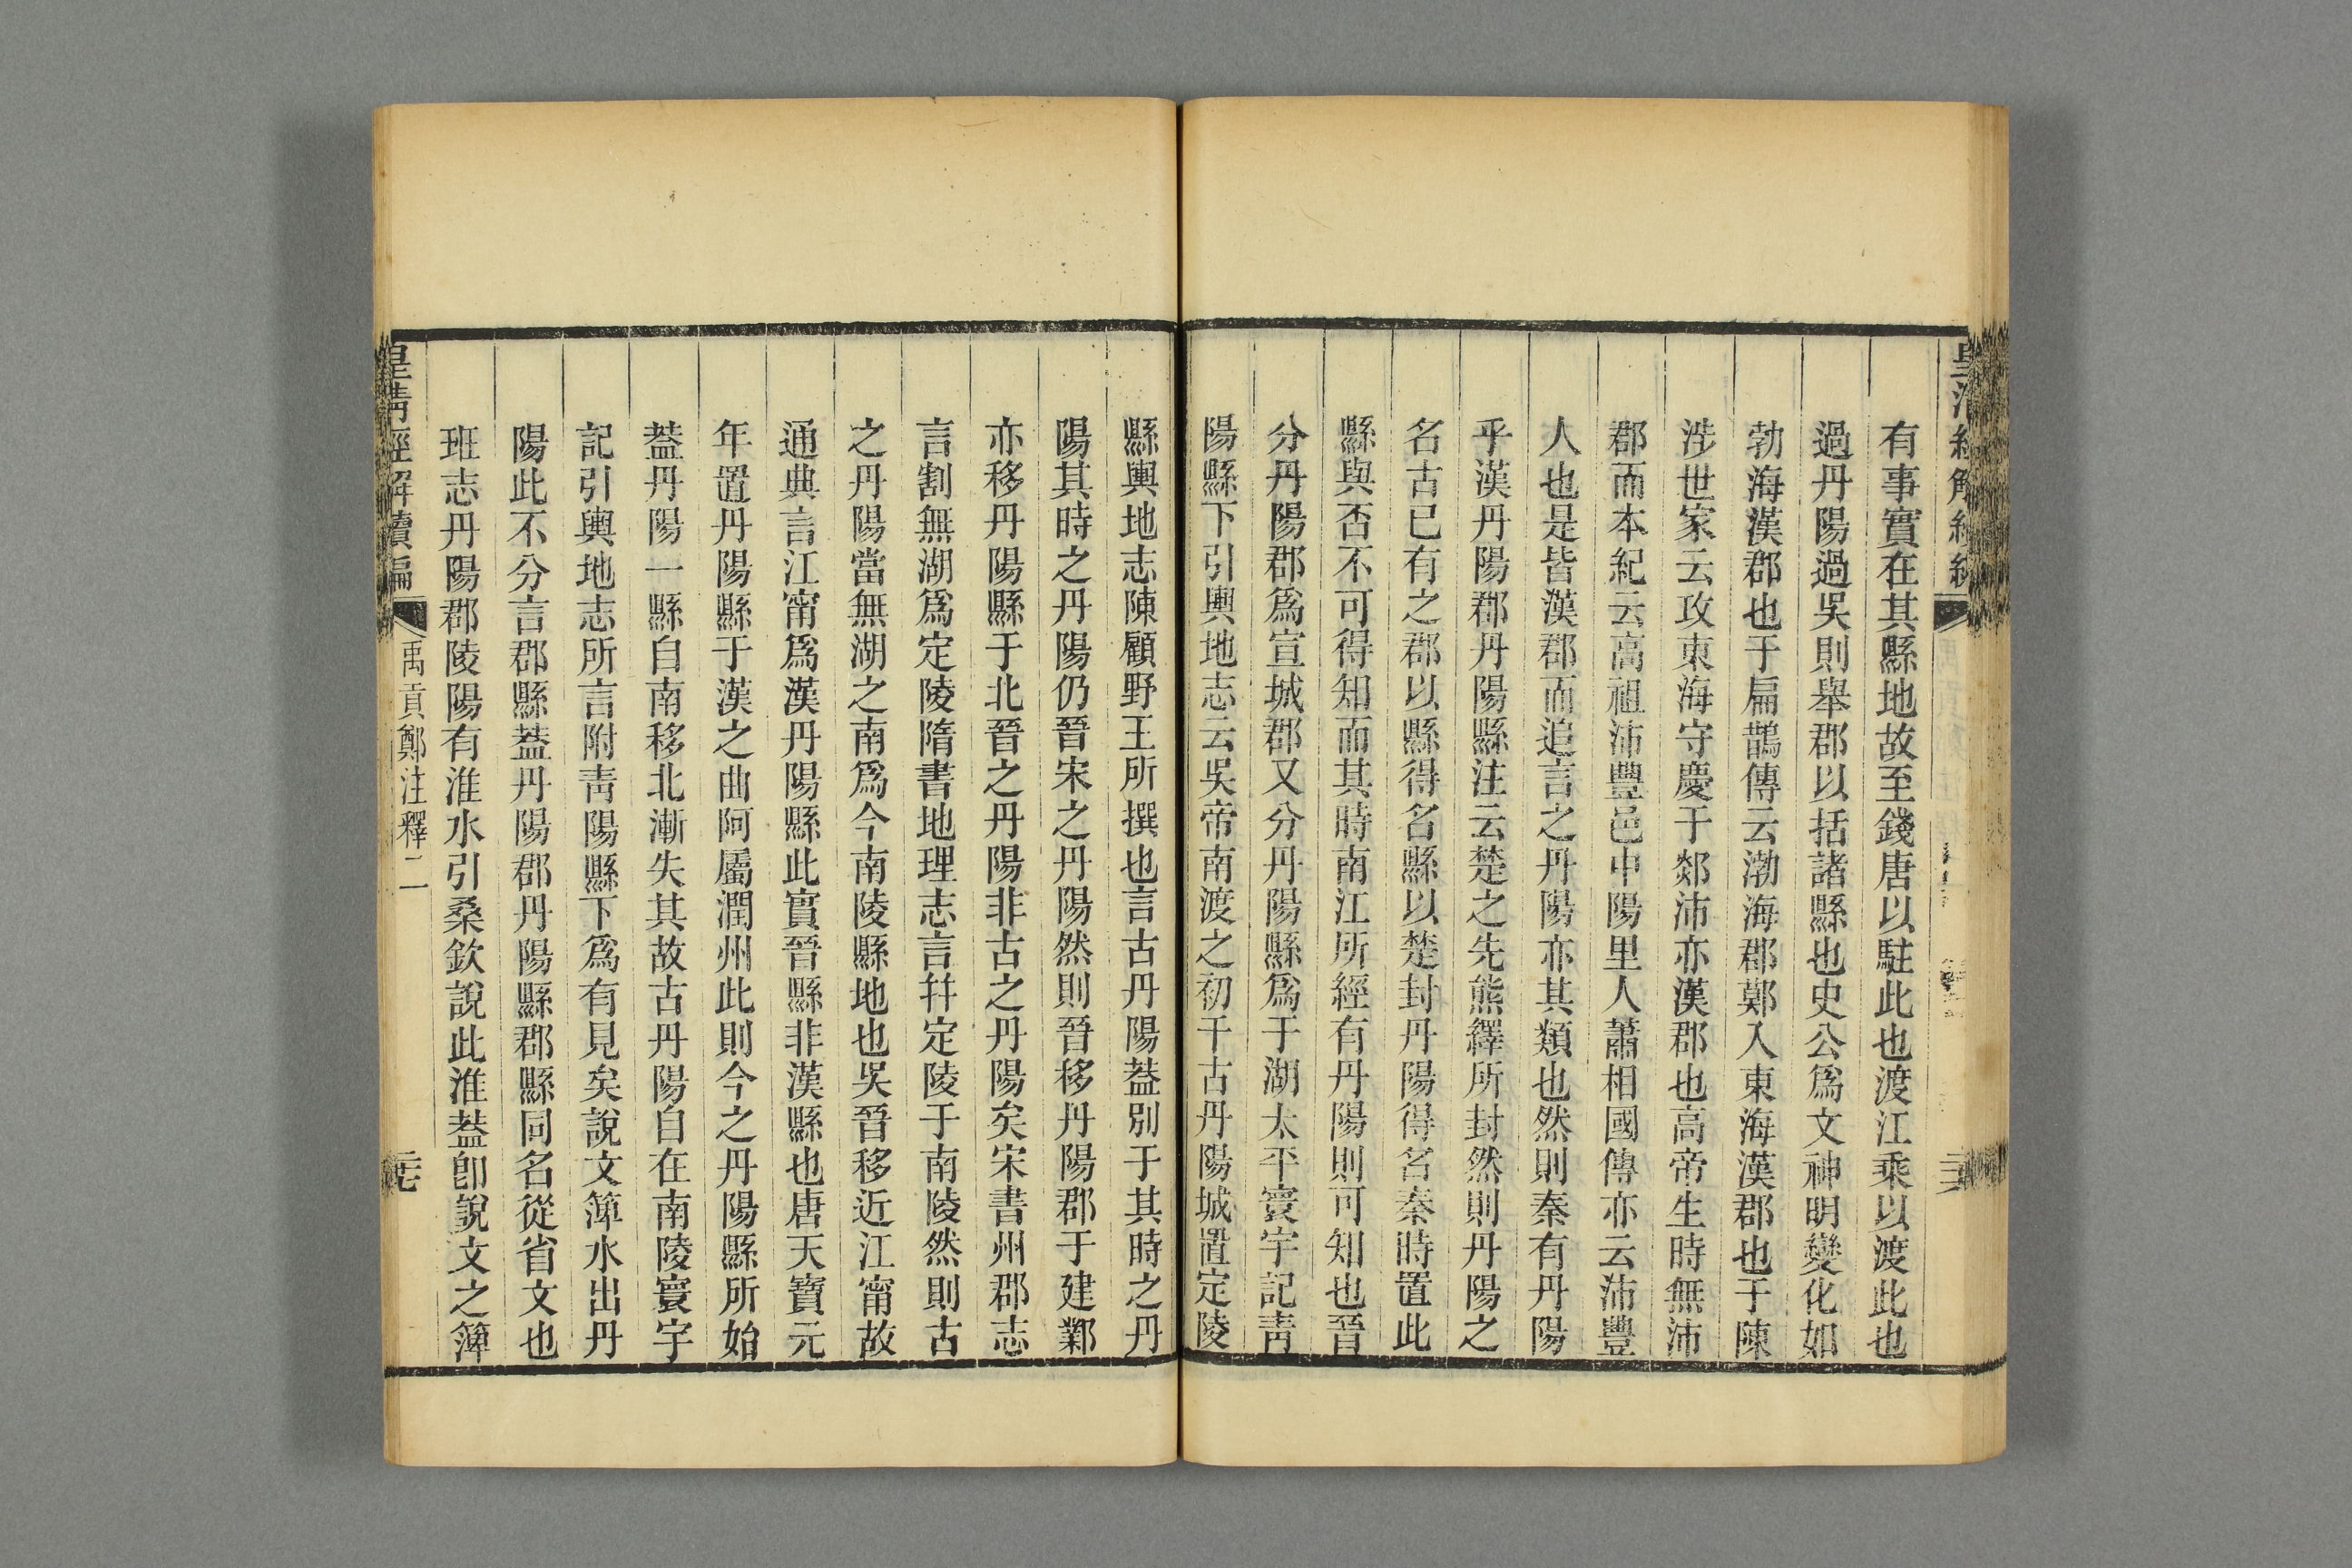 有事實在其縣地故至錢唐以駐此也渡江乘以渡此也
過丹陽過吳則舉郡以括諸縣也史公爲文神明變化如
勃海漢郡也于扁鵲傳云渤海郡鄭人東海漢郡也于陳
涉世家云攻東海守慶于郯沛亦漢郡也高帝生時無沛
郡而本紀云高祖沛豐邑中陽里人蕭相國傳亦云沛豐
人也是皆漢郡而追言之丹陽亦其類也然則秦有丹陽
乎漢丹陽郡丹陽縣注云楚之先熊繹所封然則丹陽之
名古已有之郡以縣得名縣以楚封丹陽得名秦時置此
縣與否不可得知而其時南江所經有丹陽則可知也晉
分丹陽郡爲宣城郡又分丹陽縣爲于湖太平寰宇記靑
陽縣下引輿地志云吳帝南渡之初于古丹陽城置定陵
縣輿地志陳顧野王所撰也言古丹陽葢別于其時之丹
陽其時之丹陽仍晉宋之丹陽然則晉移丹陽郡于建鄴
亦移丹陽縣于北晉之丹陽非古之丹陽矣宋書州郡志
言割無湖爲定陵隋書地理志言幷定陵于南陵然則古
之丹陽當無湖之南爲今南陵縣地也吳晉移近江甯故
通典言江甯爲漢丹陽縣此實晉縣非漢縣也唐天寶元
年置丹陽縣于漢之曲阿屬潤州此則今之丹陽縣所始
葢丹陽一縣自南移北漸失其故古丹陽自在南陵寰宇
記引輿地志所言附靑陽縣下爲有見矣說文簿水出丹
陽此不分言郡縣葢丹陽郡丹陽縣郡縣同名從省文也
班志丹陽郡陵陽有淮水引桑欽說此淮葢卽說文之簿
皇淸經解續編
禹貢鄭注釋二